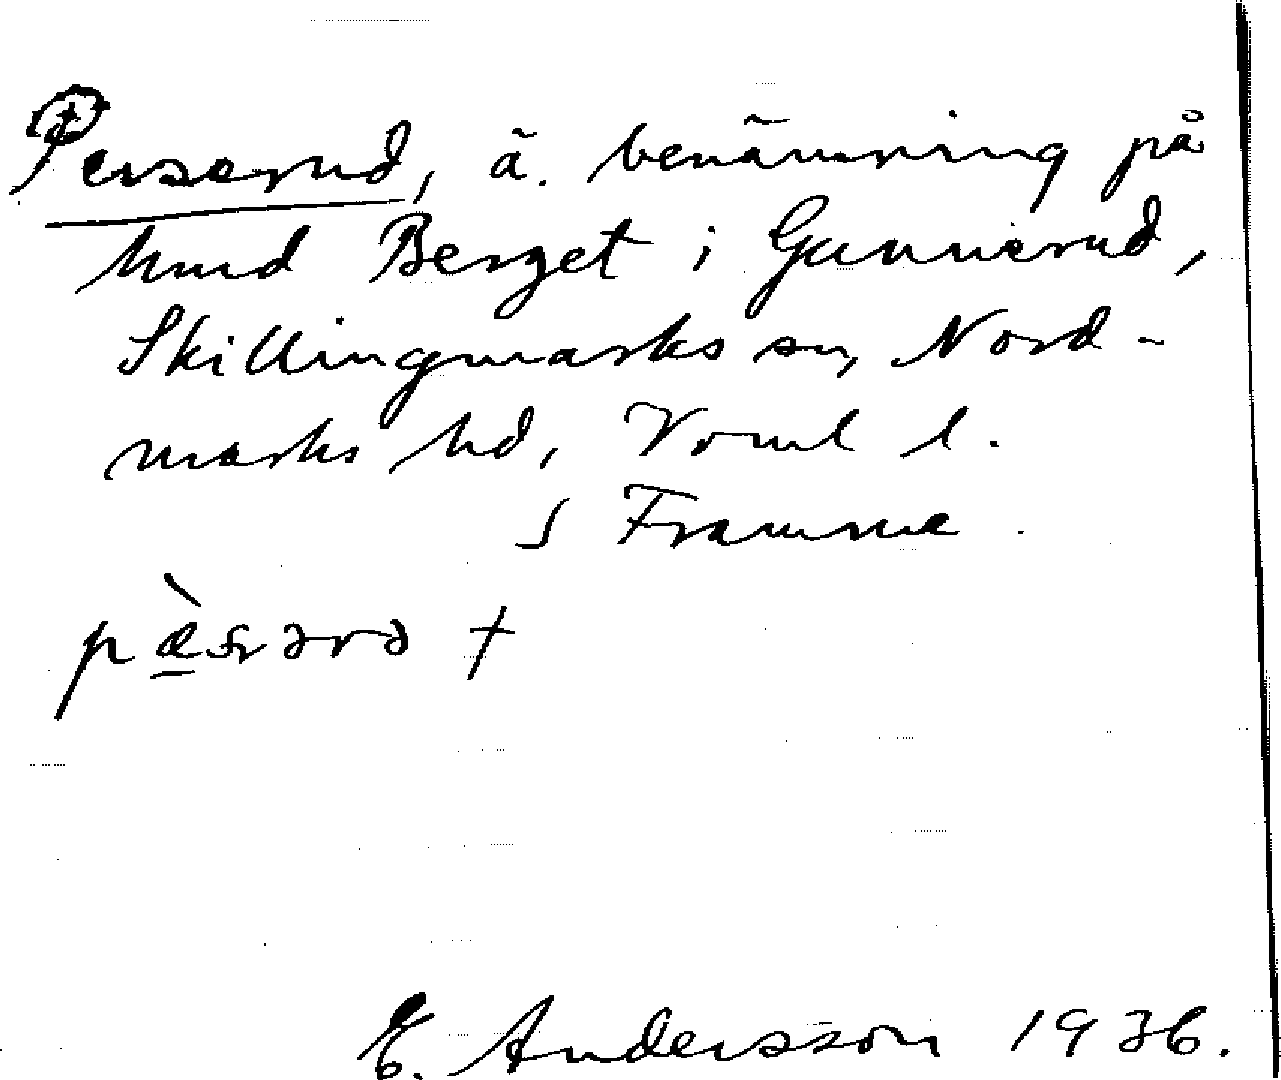 Perserud, ä. benämning på
hmd Berget i Gunnerud,
Skillingmarks sn, Nord-
marks hd, Vrml l.
S Framme.
pæ̀sərə +
E. Andersson 1936.